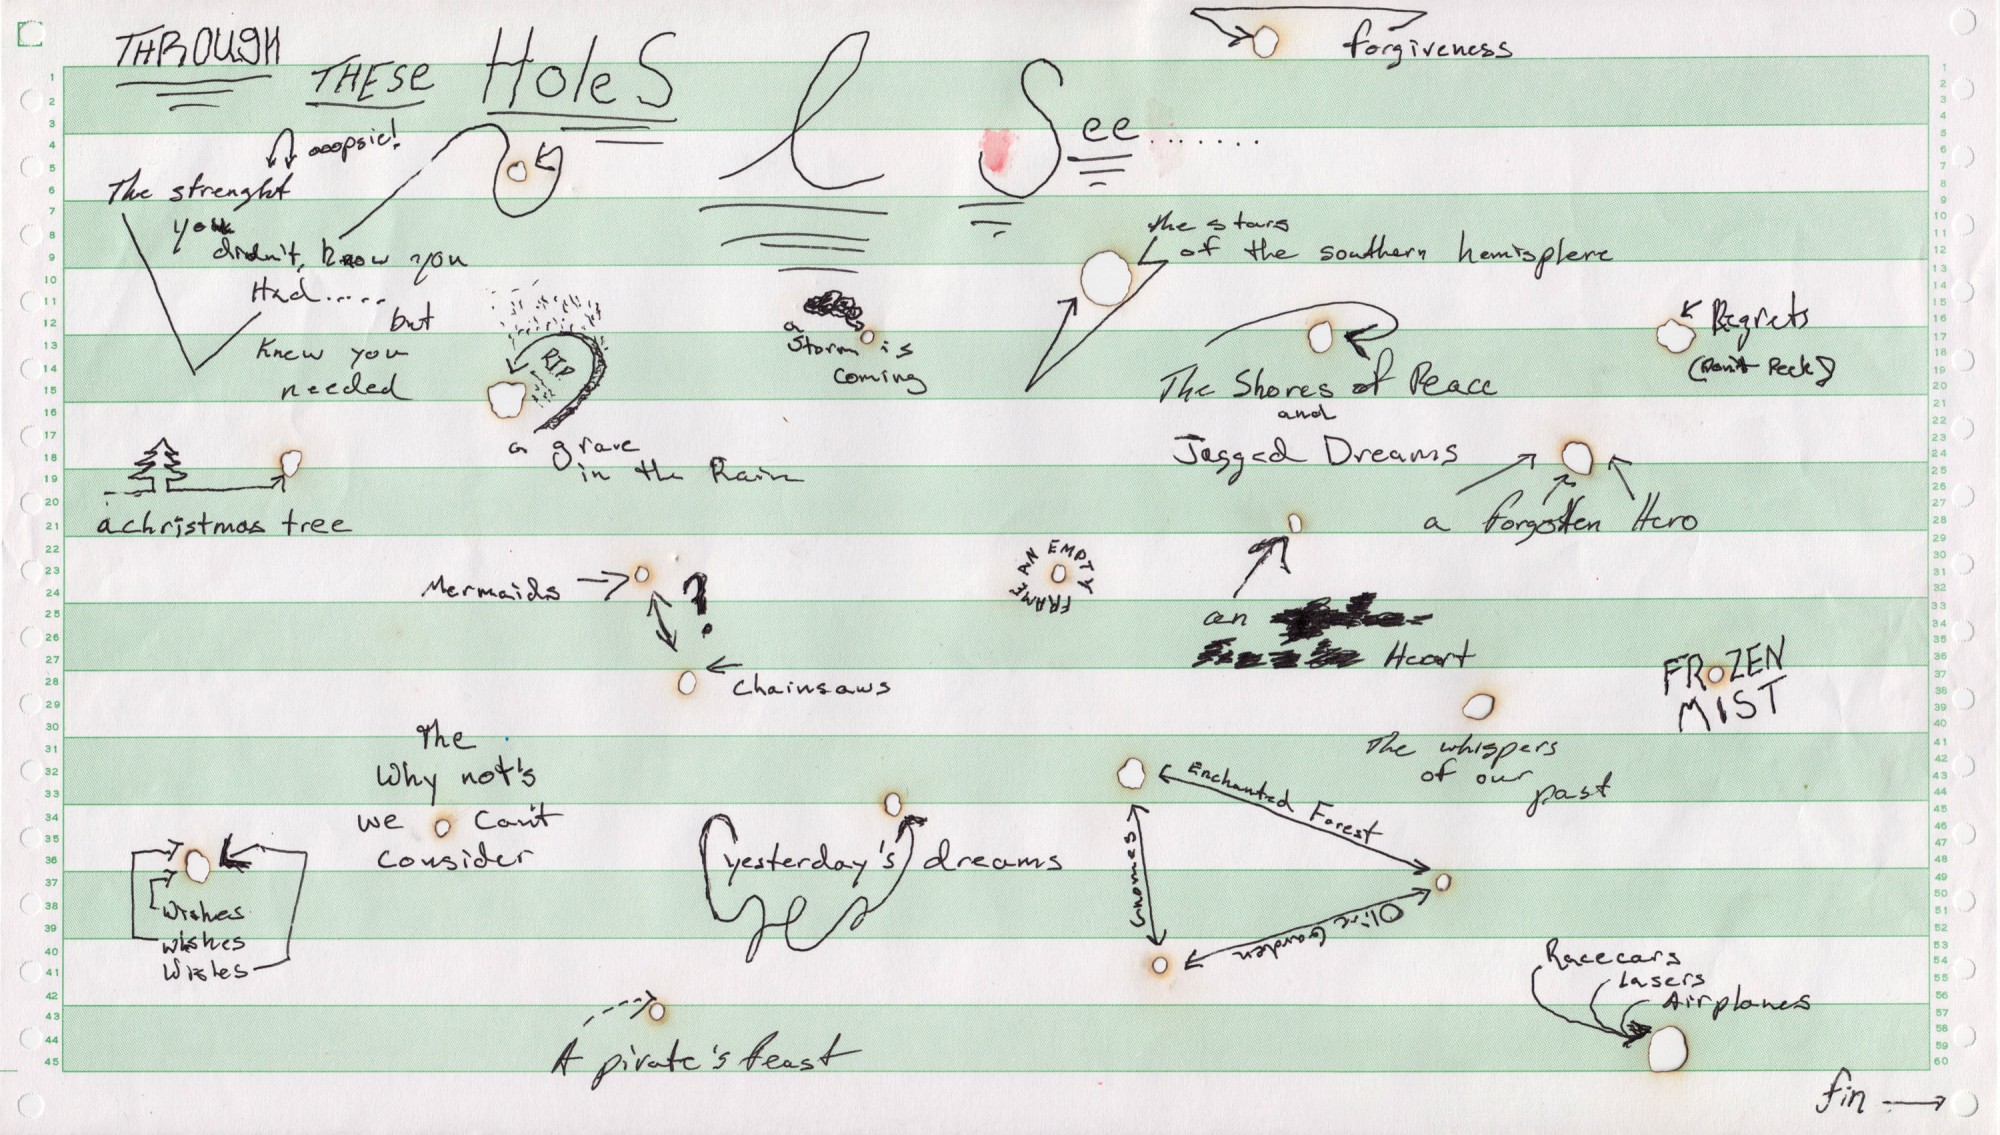 THROUGH THESE HoleS I See.......
forgiveness
ooopsie!
The strenght
you
didn't, know you
Had.....
but
Knew you
needed
the stars
of the southern hemisphere
RIP
a grave
in the Rain
a
Storm is
coming
The Shores of Peace
and
Jagged Dreams
Regrets
(Don't Peek)
a christmas tree
a forgotten Hero
Mermaids
?
Chainsaws
AN EMPTY FRAME
an
Heart
FROZEN
MIST
The whispers
of our
past
The
Why not's
we can't
consider
yesterday's dreams
Enchanted Forest
Gnomes
Olive Garden
Wishes
wishes
Wishes
A pirate's feast
Racecars
Lasers
Airplanes
fin
1
2
3
4
5
6
7
8
9
10
11
12
13
14
15
16
17
18
19
20
21
22
23
24
25
26
27
28
29
30
31
32
33
34
35
36
37
38
39
40
41
42
43
44
45
1
2
3
4
5
6
7
8
9
10
11
12
13
14
15
16
17
18
19
20
21
22
23
24
25
26
27
28
29
30
31
32
33
34
35
36
37
38
39
40
41
42
43
44
45
46
47
48
49
50
51
52
53
54
55
56
57
58
59
60